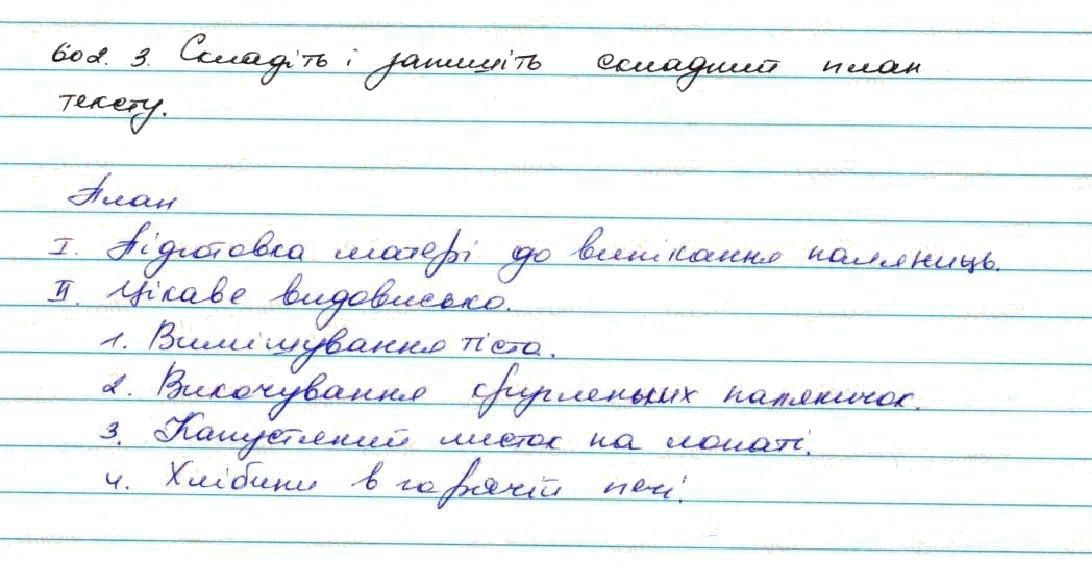 Зод. 3. Складіть і запишіть складний план
тексту.
План
I. Підготовка матері до випікання паляниць.
II. Цікаве видовисько.
1. Вимішування тіста.
2. Викочування кругленьких паляничок.
3. Капустяний листок на лопаті.
4. Хлібини в гарячій печі.